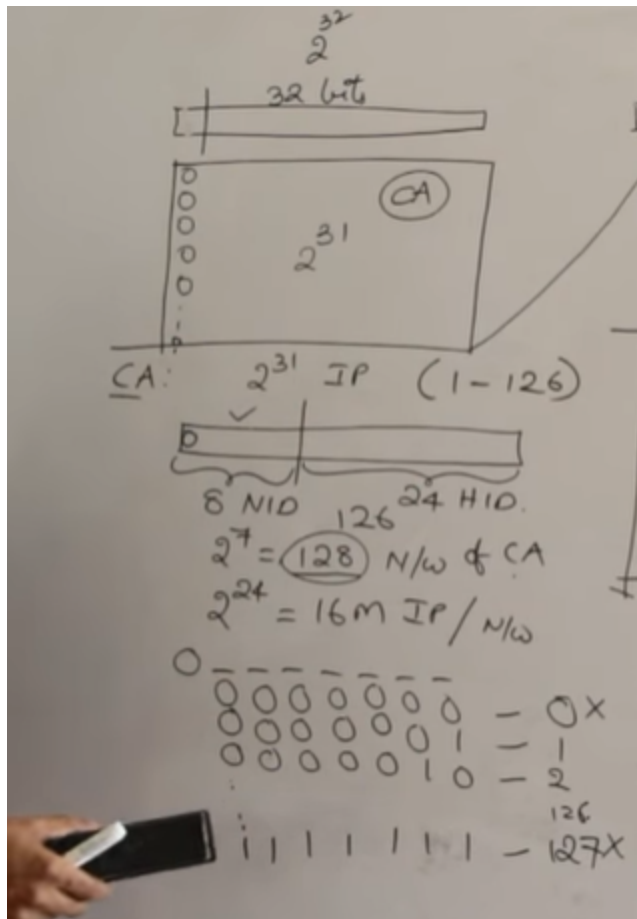 2^32
32 bits
0
0
0
0
0
CA
2^31
0
CA: 2^31 IP (1 - 126)
✓
0
8 NID 24 HID.
126
2^7 = 128 N/w of CA
2^24 = 16M IP / N/w
0 _ _ _ _ _ _ _
0 0 0 0 0 0 0 - 0 X
0 0 0 0 0 0 1 - 1
0 0 0 0 0 1 0 - 2
126
1 1 1 1 1 1 1 - 127 X